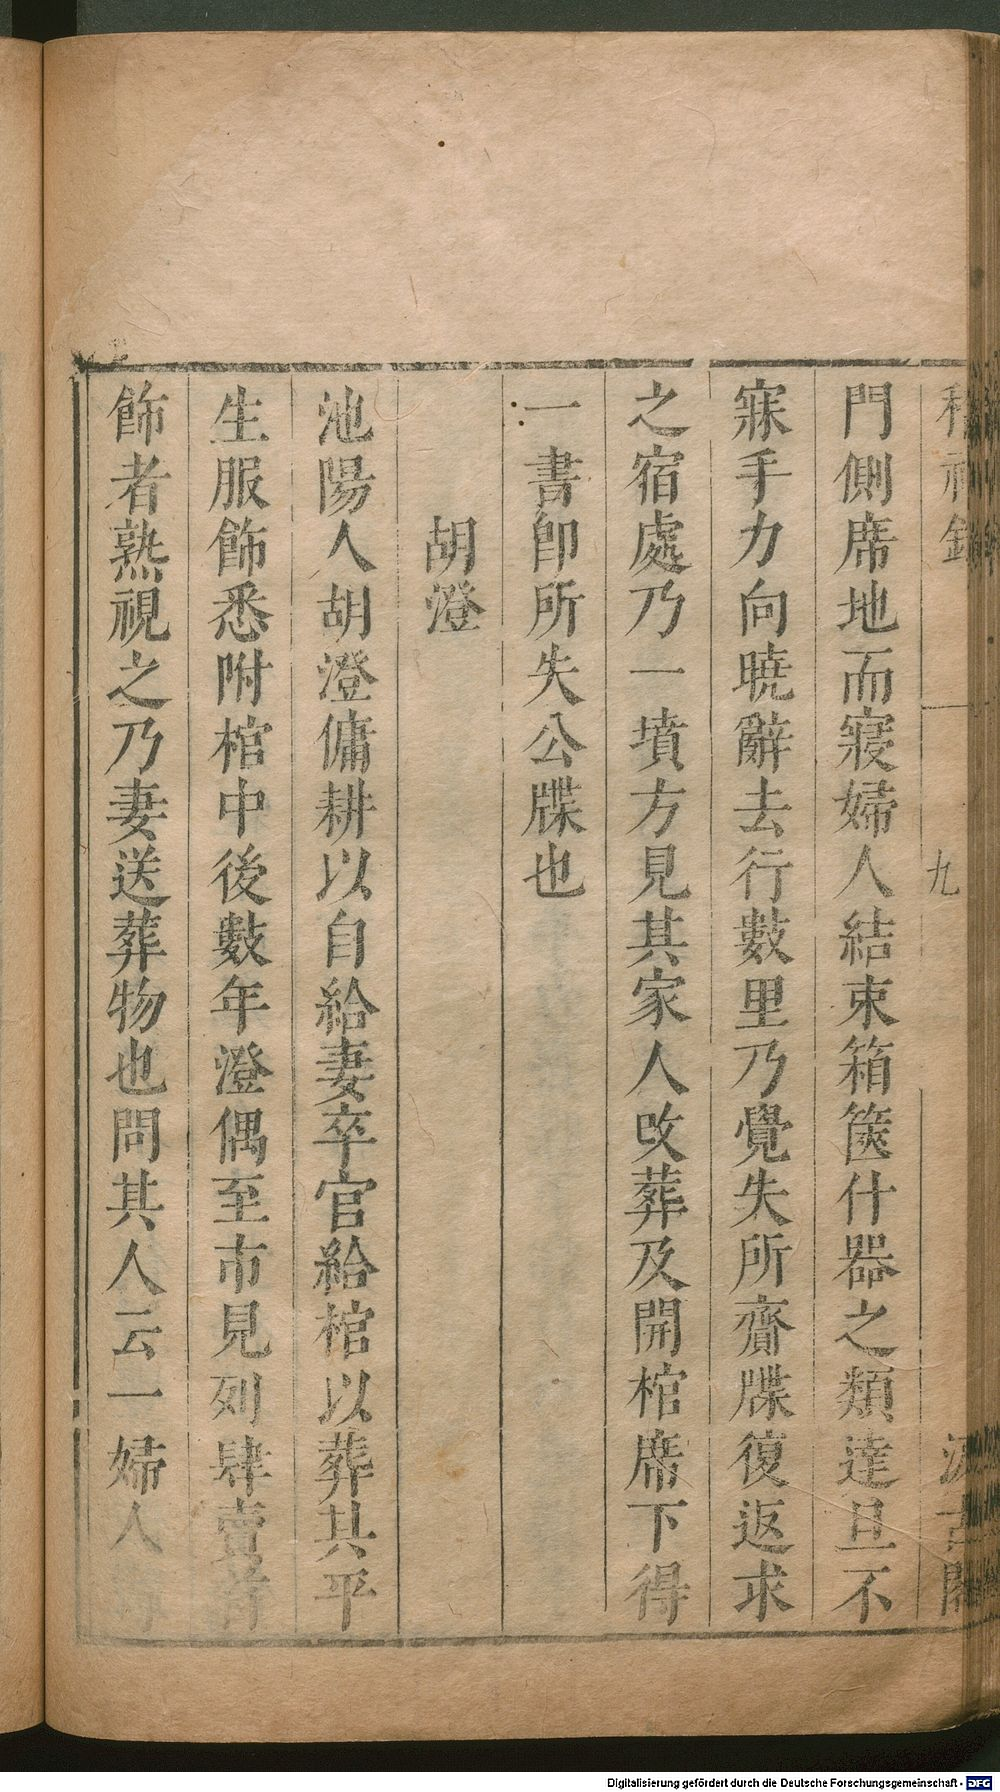 稽神錄
一
九
汲古閣
門側席地而寢婦人結束箱篋什器之類達旦不
寐手力向曉辭去行數里乃覺失所齎牒復返求
之宿處乃一墳方見其家人改葬及開棺席下得
一書卽所失公牒也
胡澄
池陽人胡澄傭耕以自給妻卒官給棺以葬其平
生服飾悉附棺中後數年澄偶至市見列肆賣首
飾者熟視之乃妻送葬物也問其人云一婦人寄
Digitalisierung gefördert durch die Deutsche Forschungsgemeinschaft - DFG